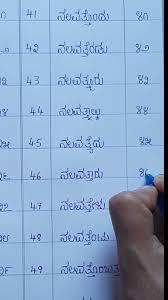 41 ನಲವತ್ತೊಂದು ೪೧
42 ನಲವತ್ತೆರಡು ೪೨
43 ನಲವತ್ಮೂರು ೪೩
44 ನಲವತ್ನಾಲ್ಕು ೪೪
45 ನಲವತ್ತೈದು ೪೫
46 ನಲವತ್ತಾರು
47 ನಲವತ್ತೇಳು
48 ನಲವತ್ತೆಂಟು
49 ನಲವತ್ತೊಂಬತ್ತು